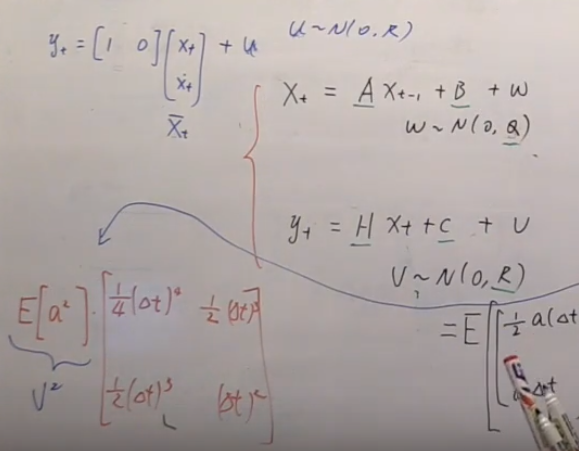 y_t = [1 0] [x_t ẋ_t] + u    u ~ N(0, R)
X̄_t
X_t = A X_{t-1} + B + w
w ~ N(0, Q)
y_t = H X_t + C + v
v ~ N(0, R)
E[a²] · [¼(Δt)⁴ ½(Δt)³
½(Δt)³ (Δt)²]
v²
= E[[½ a(Δt
Δt